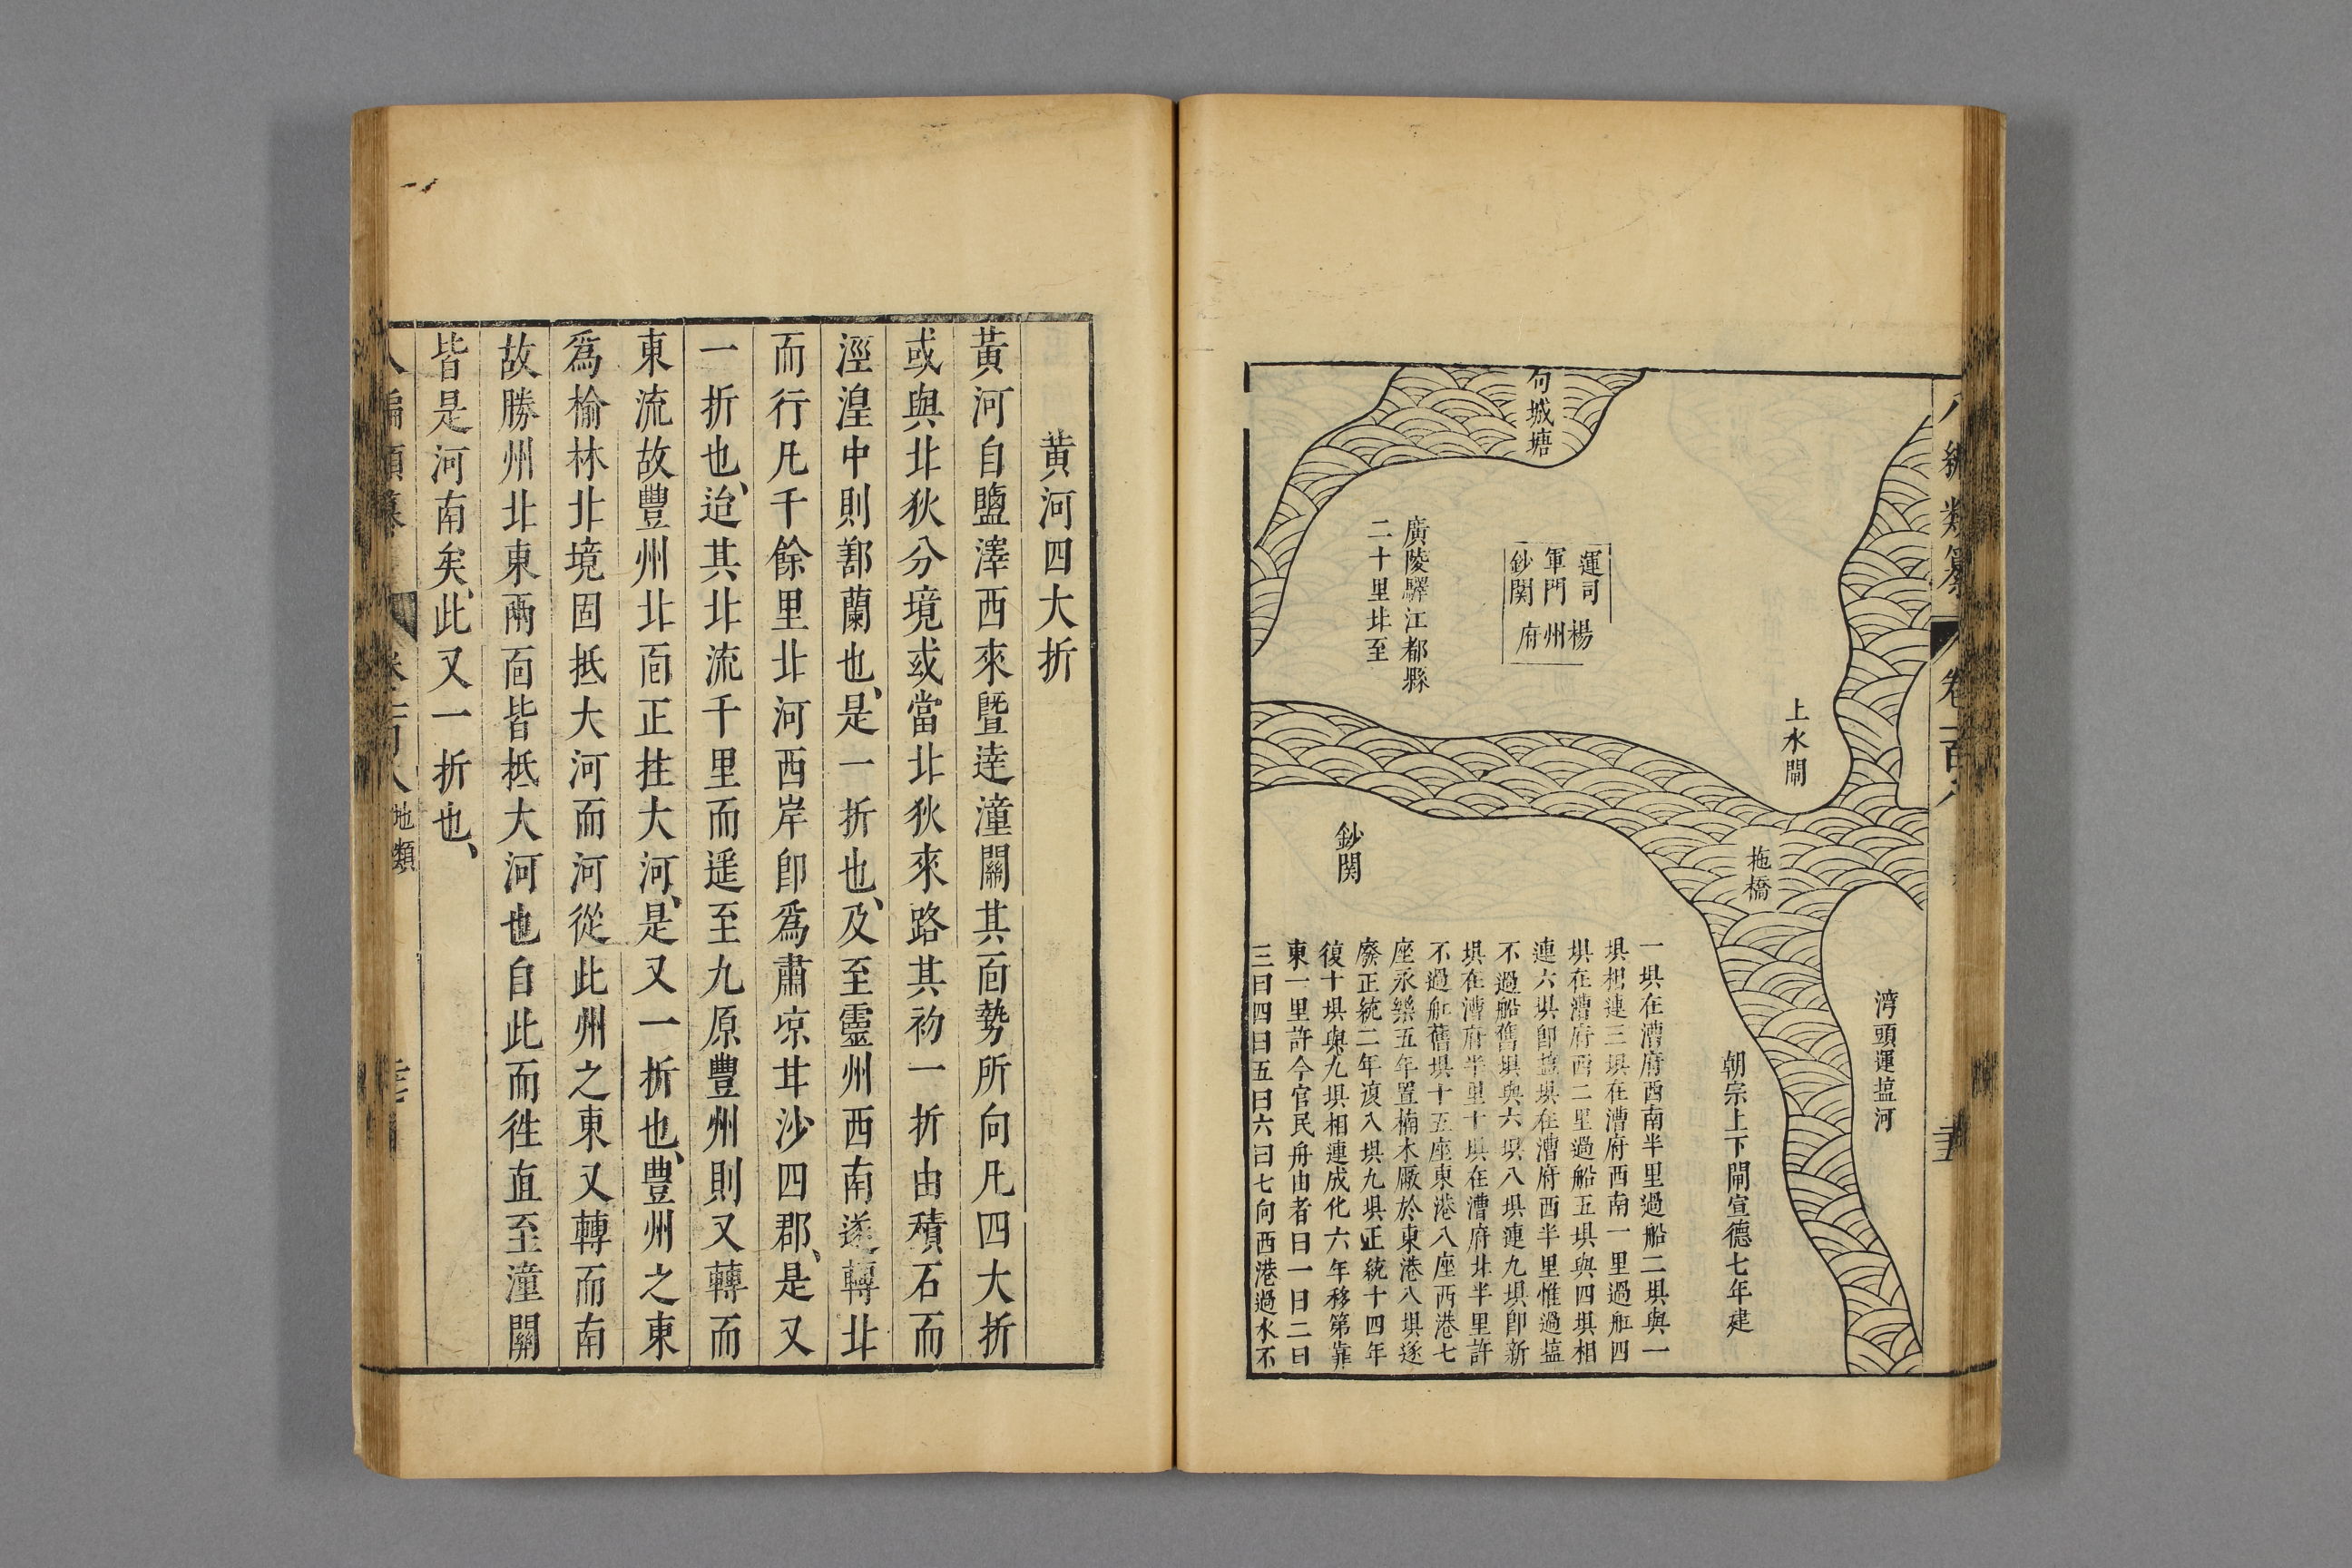 句城塘
上水閘
運司
軍門
鈔関
楊州府
廣陵驛江都縣
二十里北至
拖橋
鈔関
湾頭運塩河
朝宗上下閘宣德七年建
一垻在漕府西南半里過船二垻與一
垻相連三垻在漕府西南一里過船四
垻在漕府西二里過船五垻與四垻相
連六垻即塩垻在漕府西半里惟過塩
不過船舊垻與六垻八垻連九垻即新
垻在漕府半里十垻在漕府北半里許
不過船舊垻十五座東港八座西港七
座永樂五年置楠木厰於東港八垻遂
廢正統二年復八垻九垻正統十四年
復十垻與九垻相連成化六年移第靠
東一里許今官民舟由者曰一曰二曰
三曰四曰五曰六曰七向西港過水不
黃河四大折
黃河自鹽澤西來曁逹潼關其靣勢所向凡四大折
或與北狄分境或當北狄來路其初一折由積石而
涇湟中則鄯蘭也、是一折也、及至靈州西南遂轉北
而行凡千餘里北河西岸卽爲肅凉甘沙四郡、是又
一折也、迨其北流千里而遥至九原豐州則又轉而
東流故豐州北靣正拄大河、是又一折也、豐州之東
爲榆林北境固抵大河而河從此州之東又轉而南
故勝州北東兩靣皆抵大河也自此而徃直至潼關
皆是河南矣、此又一折也、
地類